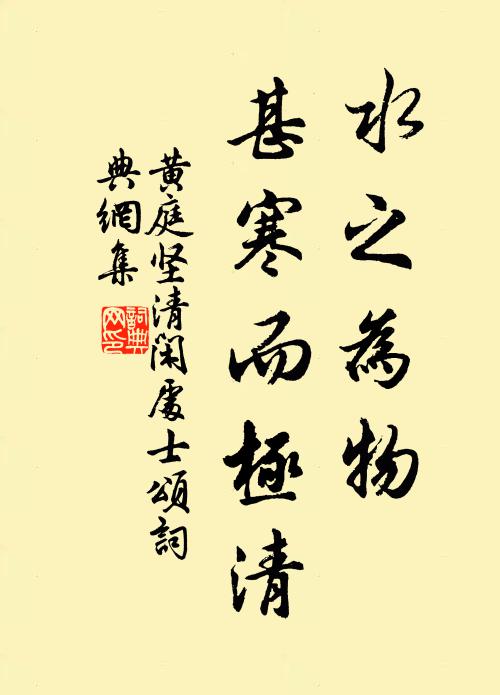 水之為物
甚寒而極清
黄庭坚清閑處士頌詞
典網集
詞典
网印